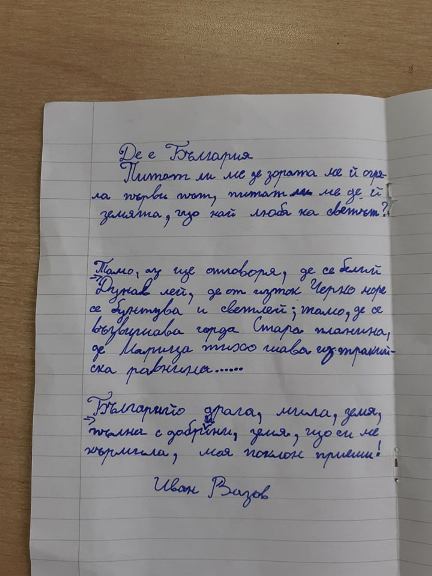 Де е България
Питат ли ме де зората ме й огре-
ла първи път, питат ли ме де й
земята, що най люба на светът?
Тамо, аз ще отговоря, де се белий
Дунав лей, де от изток Черно море
се бунтува и светлей; тамо, де се
възвишава горда Стара планина,
де Марица тихо шава из тракий-
ска равнина......
Българийо драга, мила, земя,
пълна с добрини, земя, що си ме
кърмила, моя поклон приеми!
Иван Вазов